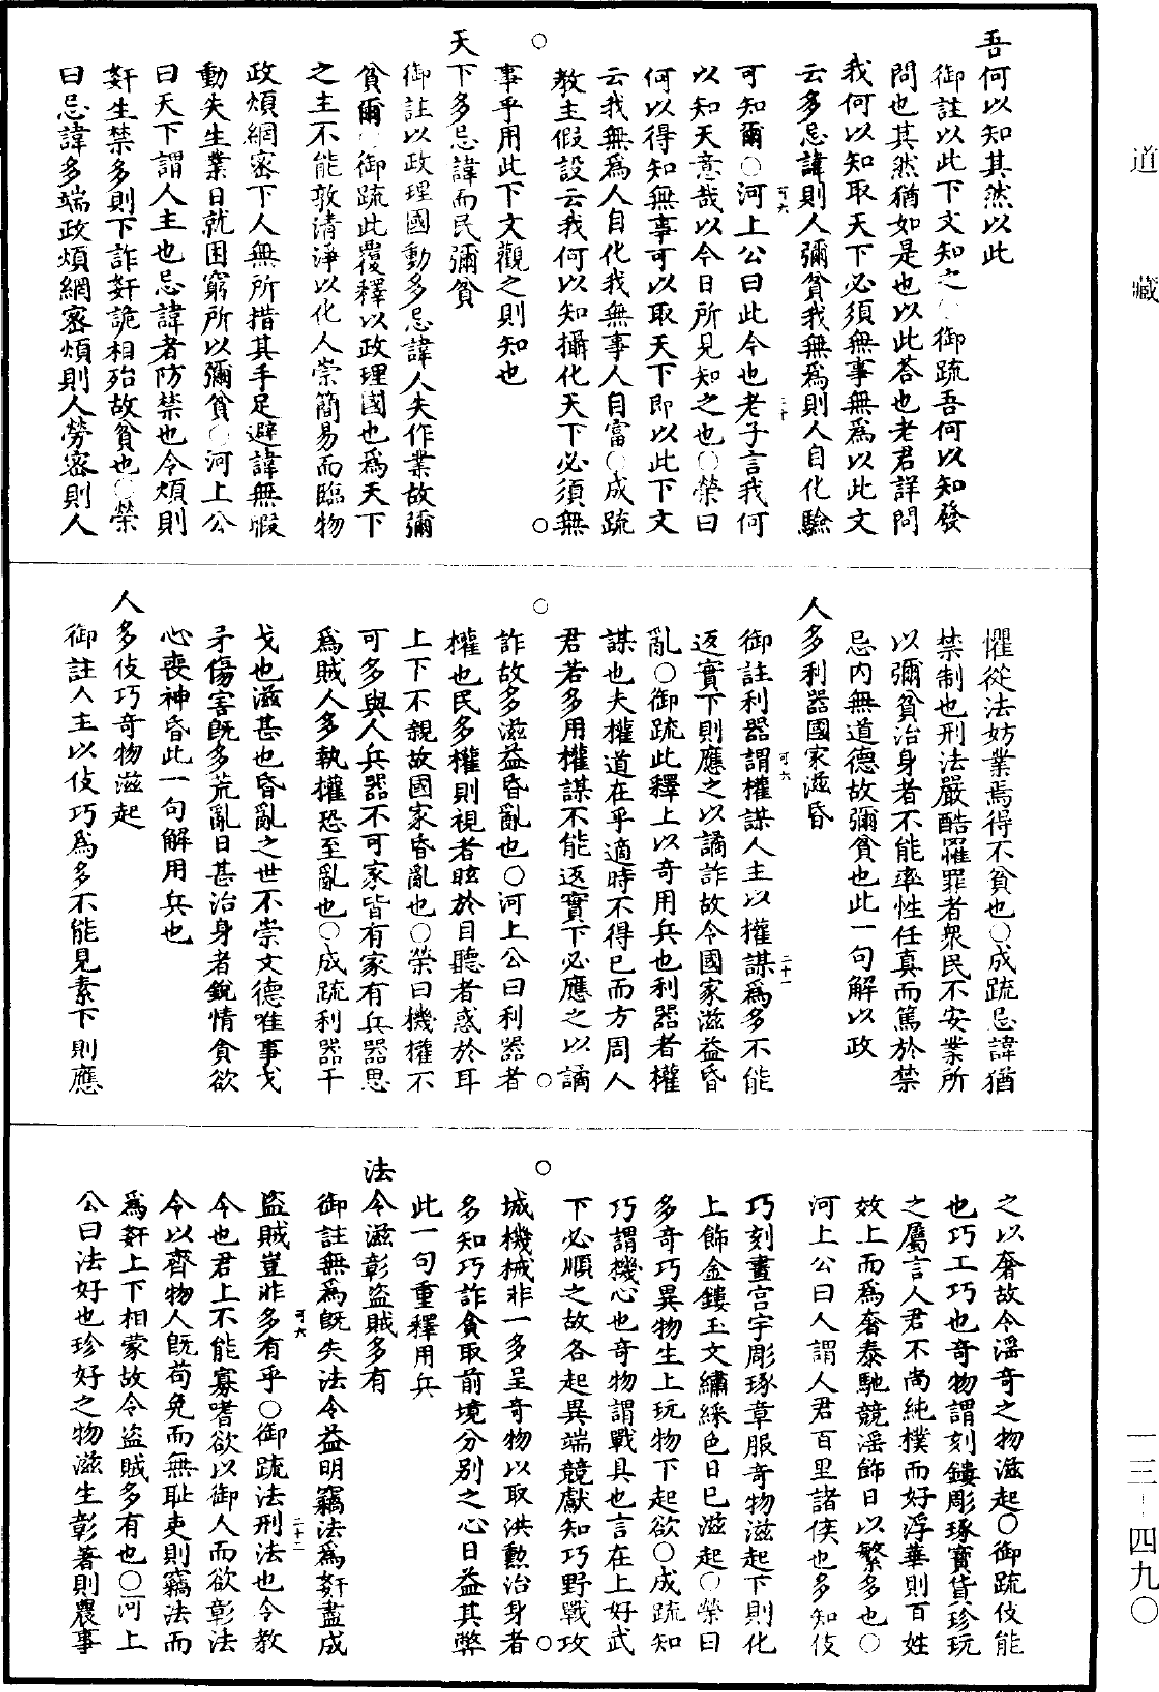 道藏
一三-四九〇
吾何以知其然以此
御註以此下文知之○御疏吾何以知發
問也其然猶如是也以此荅也老君詳問
我何以知取天下必須無事無爲以此文
云多忌諱則人彌貧我無爲則人自化驗
可六
二十
可知爾○河上公曰此今也老子言我何
以知天意哉以今日所見知之也○榮曰
何以得知無事可以取天下即以此下文
云我無爲人自化我無事人自富○成疏
教主假設云我何以知攝化天下必須無
事乎用此下文觀之則知也
天下多忌諱而民彌貧
御註以政理國動多忌諱人失作業故彌
貧爾○御疏此覆釋以政理國也爲天下
之主不能敦清淨以化人崇簡易而臨物
政煩網密下人無所措其手足避諱無暇
動失生業日就困窮所以彌貧○河上公
曰天下謂人主也忌諱者防禁也令煩則
姧生禁多則下詐姧詭相殆故貧也○榮
曰忌諱多端政煩網密煩則人勞密則人
懼從法妨業焉得不貧也○成疏忌諱猶
禁制也刑法嚴酷罹罪者衆民不安業所
以彌貧治身者不能率性任真而篤於禁
忌内無道德故彌貧也此一句解以政
人多利器國家滋昏
可六
二十一
御註利器謂權謀人主以權謀爲多不能
返實下則應之以譎詐故令國家滋益昏
亂○御疏此釋上以奇用兵也利器者權
謀也夫權道在乎適時不得已而方周人
君若多用權謀不能返實下必應之以譎
詐故多滋益昏亂也○河上公曰利器者
權也民多權則視者眩於目聽者惑於耳
上下不親故國家昏亂也○榮曰機權不
可多與人兵器不可家皆有家有兵器思
爲賊人多執權恐至亂也○成疏利器干
戈也滋甚也昏亂之世不崇文德唯事戈
矛傷害既多荒亂日甚治身者銳情貪欲
心喪神昏此一句解用兵也
人多伎巧奇物滋起
御註人主以伎巧爲多不能見素下則應
之以奢故令滛奇之物滋起○御疏伎能
也巧工巧也奇物謂刻鏤彫琢寶貨珍玩
之屬言人君不尚純樸而好浮華則百姓
效上而爲奢泰馳競滛飾日以繁多也○
河上公曰人謂人君百里諸侯也多知伎
巧刻畫宫宇彫琢章服奇物滋起下則化
上飾金鏤玉文繡綵色日已滋起○榮曰
多奇巧異物生上玩物下起欲○成疏知
巧謂機心也奇物謂戰具也言在上好武
下必順之故各起異端競獻知巧野戰攻
城機械非一多呈奇物以取洪勳治身者
多知巧詐貪取前境分别之心日益其弊
此一句重釋用兵
法令滋彰盜賊多有
御註無爲既失法令益明竊法爲姧盡成
可六
二十二
盜賊豈非多有乎○御疏法刑法也令教
令也君上不能寡嗜欲以御人而欲彰法
令以齊物人既苟免而無耻吏則竊法而
爲姧上下相蒙故令盜賊多有也○河上
公曰法好也珍好之物滋生彰著則農事